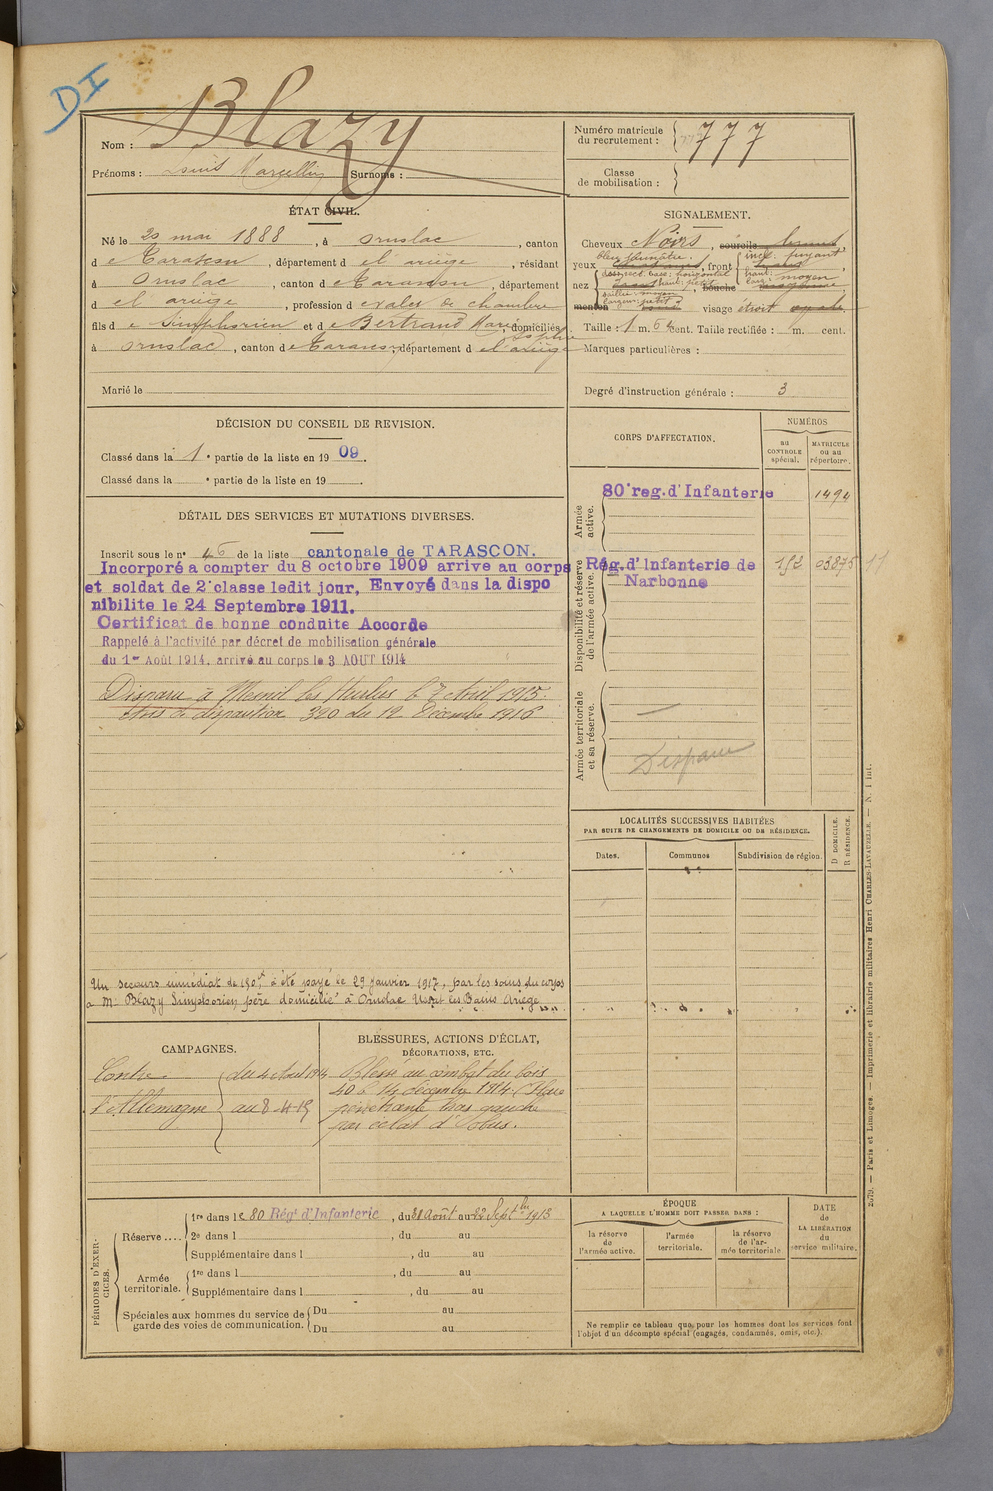 DI
Nom : Blazy
Prénoms : Louis Marcellin Surnoms :
Numéro matricule du recrutement : 777
Classe de mobilisation :
ÉTAT CIVIL.
Né le 20 mai 1888, à Ornolac, canton
de Tarascon, département de l'ariège, résidant
à Ornolac, canton de Tarascon, département
de l'ariège, profession de valet de chambre
fils de Simphorien et de Bertrand Marie Sophie, domiciliés
à Ornolac, canton de Tarascon, département de l'ariège
Marié le
SIGNALEMENT.
Cheveux Noirs, sourcils bruns,
yeux bleu jaunâtre, front incl: fuyant
haut: moyen
nez dos rect. base: horizontal
haut: petit
saillie: moyen
largeur: petit
bouche
menton visage étroit ovale
Taille : 1 m. 6 cent. Taille rectifiée : m. cent.
Marques particulières :
Degré d'instruction générale : 3
DÉCISION DU CONSEIL DE REVISION.
Classé dans la 1e partie de la liste en 1909.
Classé dans la e partie de la liste en 19 .
CORPS D'AFFECTATION.
NUMÉROS
au CONTROLE spécial.
MATRICULE ou au répertoire.
Armée active.
80e reg. d'Infanterie 1494
Disponibilité et réserve de l'armée active.
Rég. d'Infanterie de Narbonne
Armée territoriale et sa réserve.
Disparu
DÉTAIL DES SERVICES ET MUTATIONS DIVERSES.
Inscrit sous le n° 46 de la liste cantonale de TARASCON.
Incorporé a compter du 8 octobre 1909 arrive au corps
et soldat de 2e classe ledit jour, Envoyé dans la dispo
nibilite le 24 Septembre 1911.
Certificat de bonne conduite Accorde
Rappelé à l'activité par décret de mobilisation générale
du 1er Août 1914, arrivé au corps le 3 AOUT 1914
Disparu à Mesnil les Hurlus le 7 Avril 1915.
Avis de disparition 320 du 12 Décembre 1916
Un secours immédiat de 150f, a été payé le 29 janvier 1917, par les soins du corps
à Mr Blazy Simphorien père domicilié à Ornolac Ussat les Bains Ariège
LOCALITÉS SUCCESSIVES HABITÉES
PAR SUITE DE CHANGEMENTS DE DOMICILE OU DE RÉSIDENCE.
Dates.
Communes
Subdivision de région.
D DOMICILE.
R RÉSIDENCE.
CAMPAGNES.
Contre l'Allemagne
du 4 Aout 1914
au 8-4-15
BLESSURES, ACTIONS D'ÉCLAT,
DÉCORATIONS, ETC.
Blessé au combat du bois
40 le 14 décembre 1914. Plaie
pénétrante bras gauche
par éclat d'obus.
PÉRIODES D'EXERCICES.
Réserve ....
1re dans le 80 Régt d'Infanterie, du 31 Août au 22 Septbre 1913
2e dans l , du au
Supplémentaire dans l , du au
Armée territoriale.
1re dans l , du au
Supplémentaire dans l , du au
Spéciales aux hommes du service de garde des voies de communication.
Du au
Du au
ÉPOQUE
A LAQUELLE L'HOMME DOIT PASSER DANS :
la réserve de l'armée active.
l'armée territoriale.
la réserve de l'armée territoriale
DATE de LA LIBÉRATION du service militaire.
Ne remplir ce tableau que pour les hommes dont les services font
l'objet d'un décompte spécial (engagés, condamnés, omis, etc.).
2079. — Paris et Limoges. — Imprimerie et librairie militaires Henri CHARLES-LAVAUZELLE. — N. 1 int.